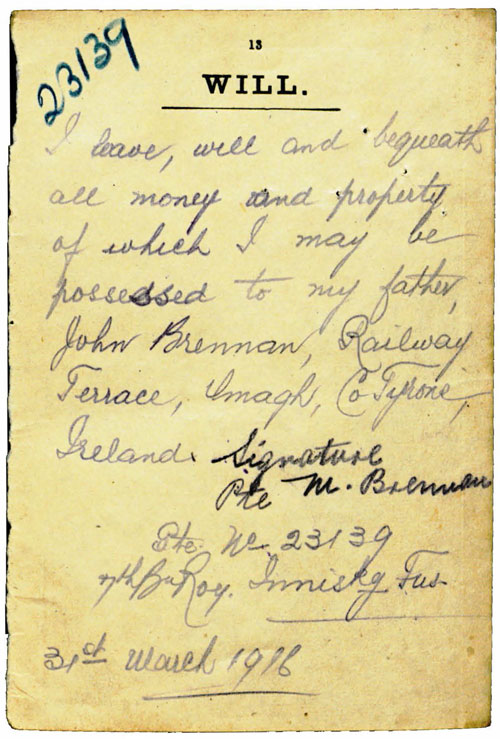 13
23139
WILL.
I leave, will and bequeath
all money and property
of which I may be
possessed to my father,
John Brennan, Railway
Terrace, Omagh, Co Tyrone,
Ireland. Signature
Pte M. Brennan
Pte No 23139
7th Bn Roy. Inniskg Fus.
31st March 1916